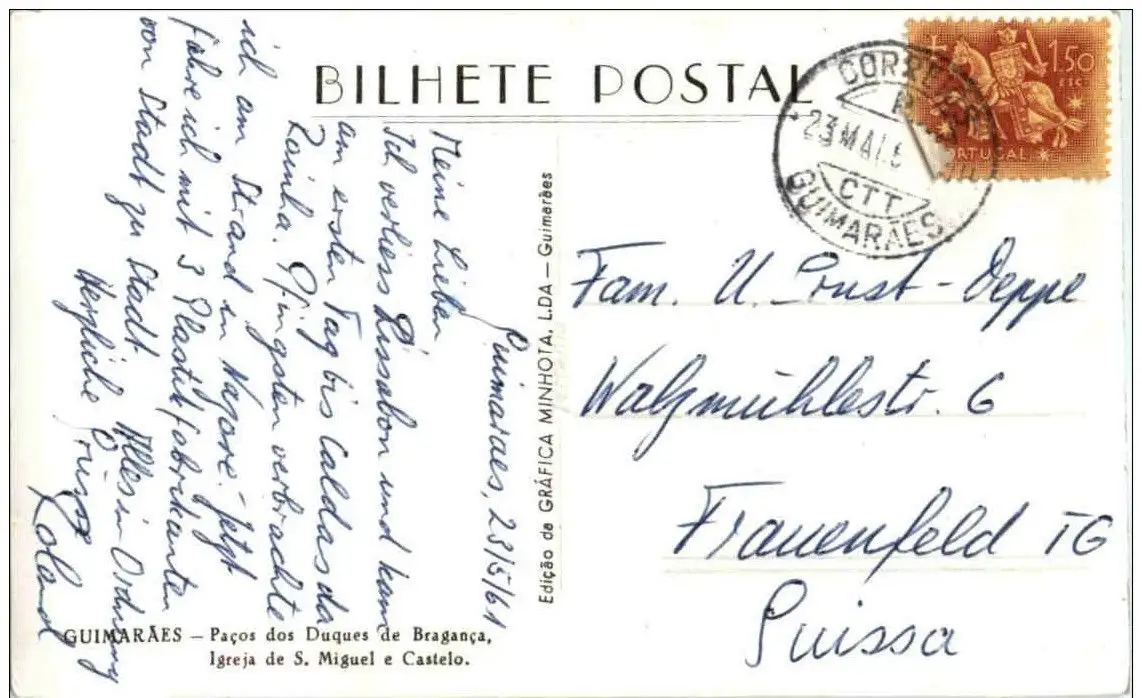 BILHETE POSTAL
CORREIOS
23 MAI. 6
CTT
GUIMARÃES
1$50
ESC.
PORTUGAL
Guimaraes, 23/5/61
Meine Lieben
Ich verliess Lissabon und kam
am ersten Tag bis Caldas da
Rainha. Pfingsten verbrachte
ich am Strand in Nazare. Jetzt
fahre ich mit 3 Plastikfabrikanten
von Stadt zu Stadt. Alles in Ordnung
Herzliche Grüsse
Roland
Edição da GRÁFICA MINHOTA, L.DA — Guimarães
Fam. U. Ernst-Deppe
Walzmühlestr. 6
Frauenfeld TG
Suissa
GUIMARÃES — Paços dos Duques de Bragança,
Igreja de S. Miguel e Castelo.